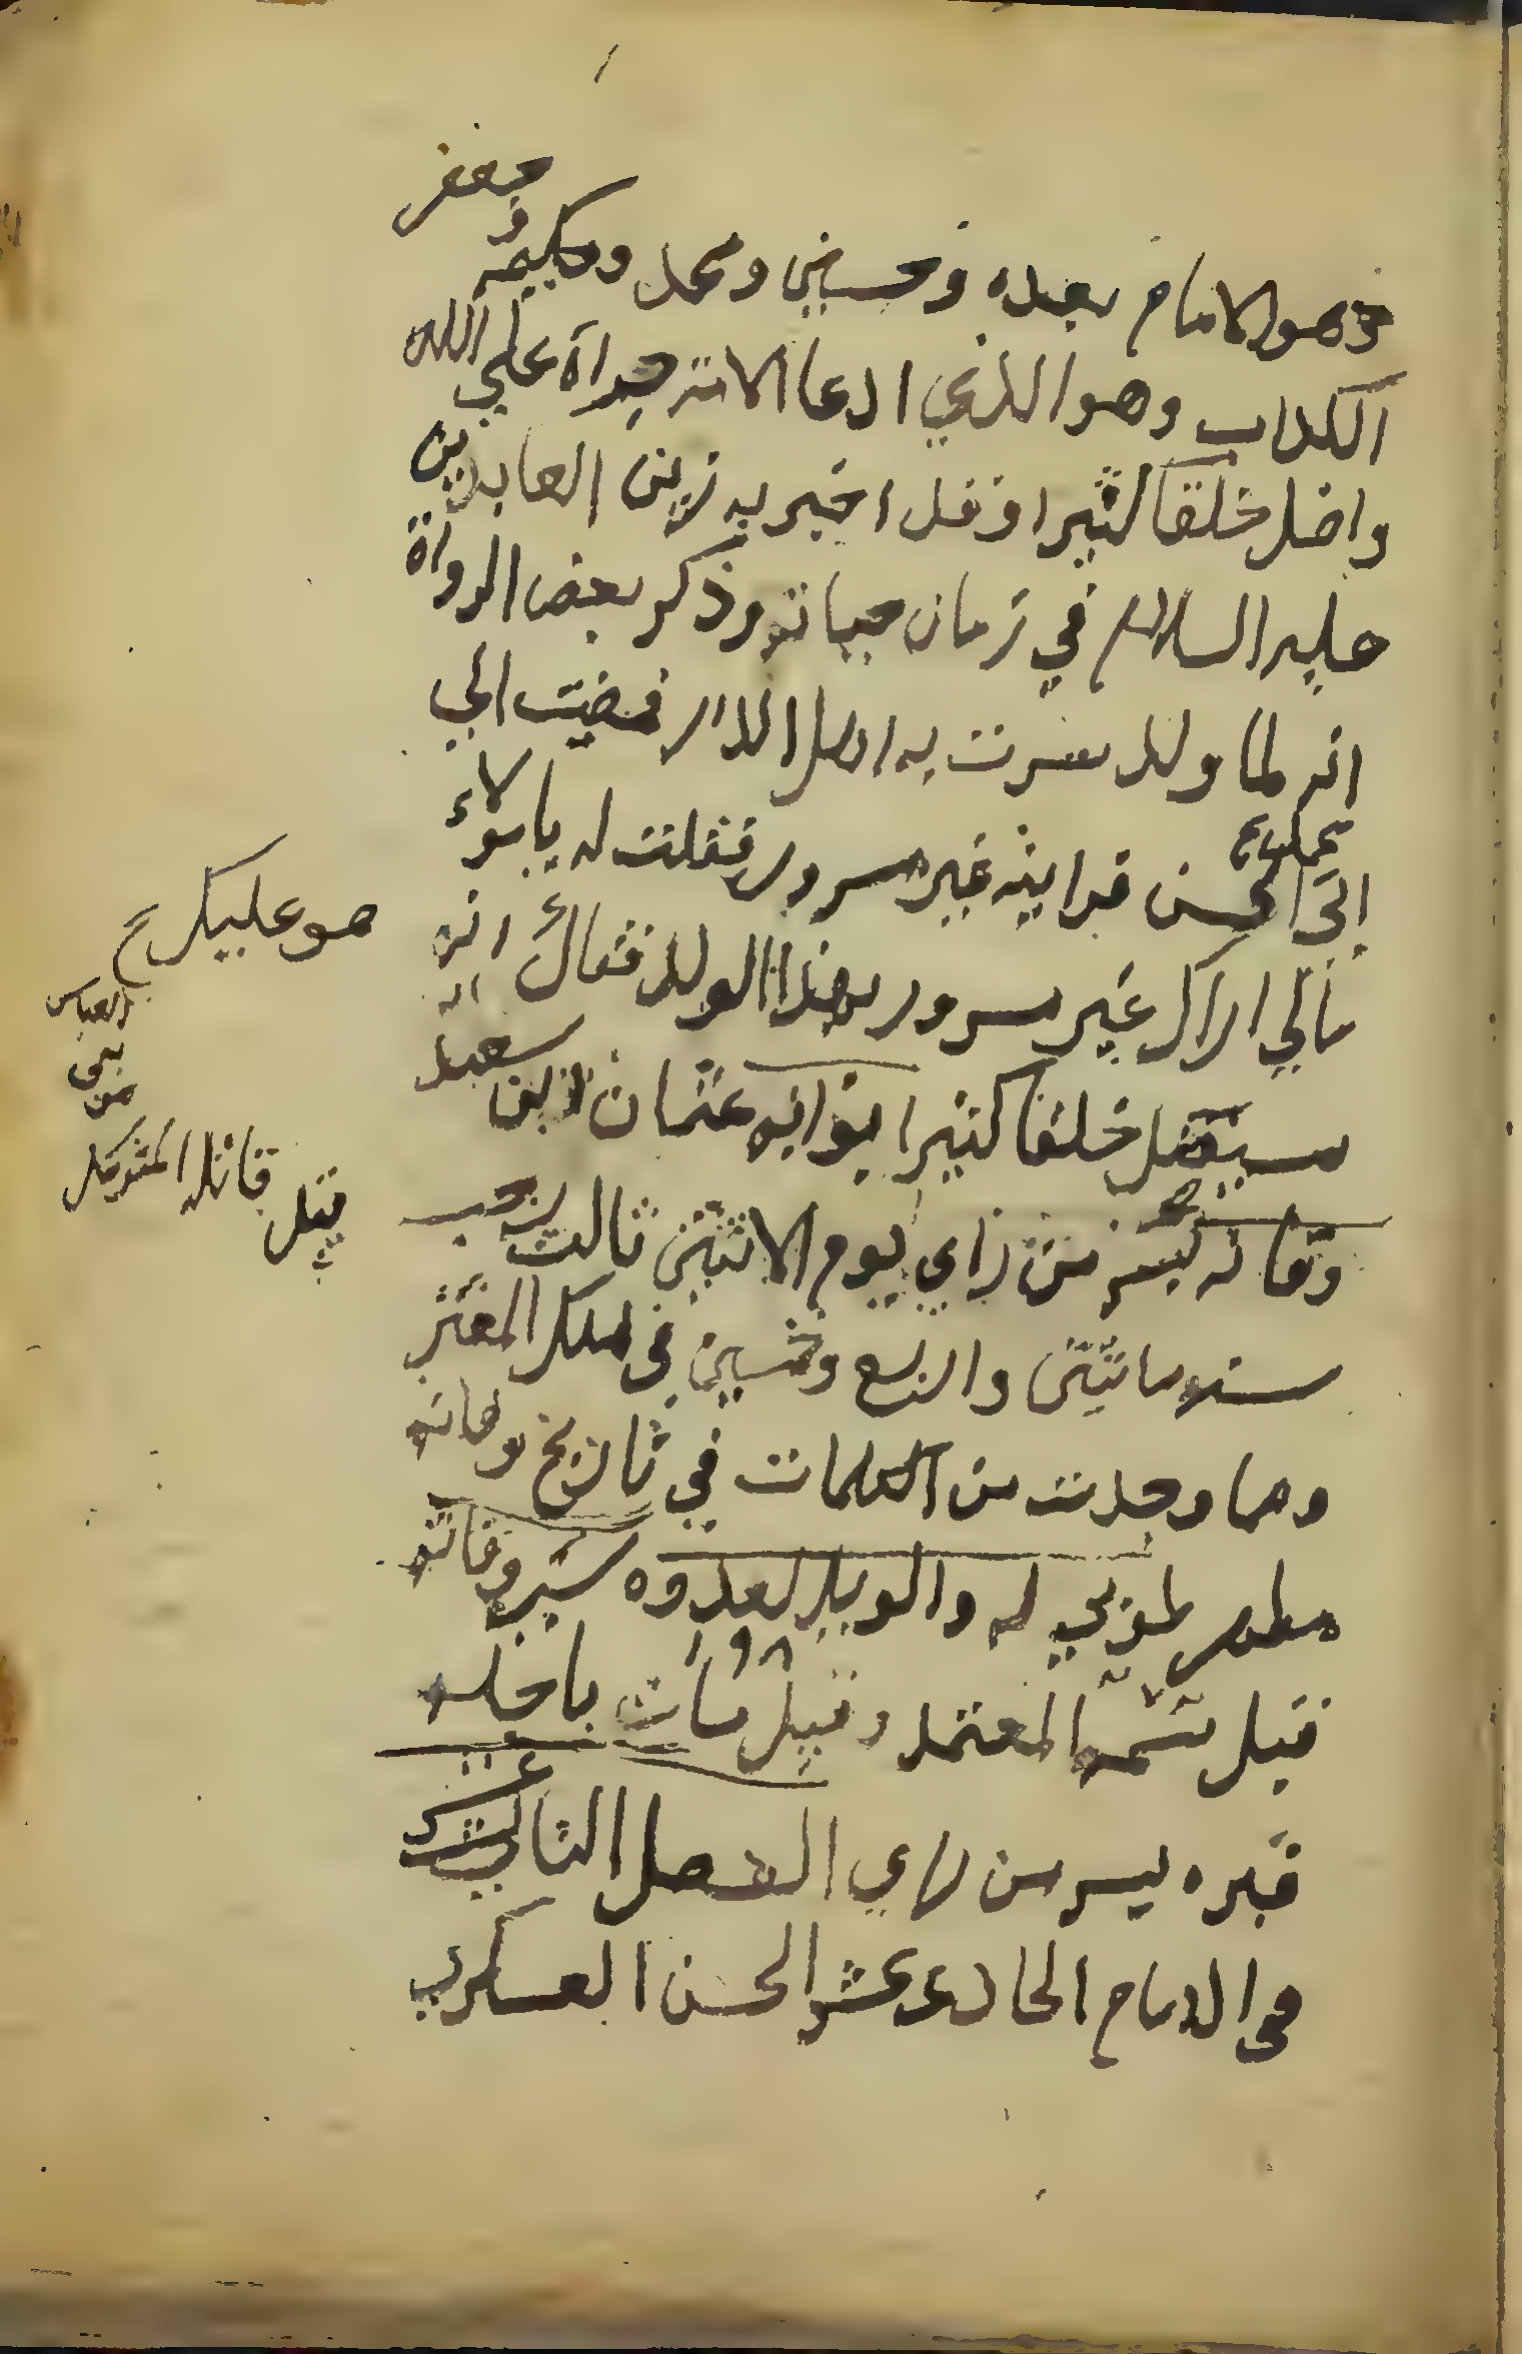 وهو الامام بعده وحسين ومحمد وحكيمه وجعفر
الكداب وهو الذي ادعا الامامة جراة علي الله
واضل خلقا كثيرا وقد اخبر به زين العابدين
عليه السلام في زمان حياته وذكر بعض الرواة
انه لما ولد سرت به اهل الدار فمضيت الي
ابي الحسن فرايته غير مسرور فقلت له يا مولاي
مالي اراك غير مسرور بهذا الولد فقال انه
سيضل خلقا كثيرا بوابه عثمان ابن سعيد
وفاته بسر من راي يوم الاثنين ثالث رجب
سنه مائتين واربع وخمسين في ملك المعتز
ومما وجدت من الكلمات في تاريخ وفاته
لمن له والويل لعدوه وفاته
قيل سمه المعتمد وقيل مات باجله
قبره بسر من راي الفصل الثالث عشر
في الامام الحادي عشر الحسن العسكري
هو عليكم
العباس
بني
من
قيل قاتله المتوكل